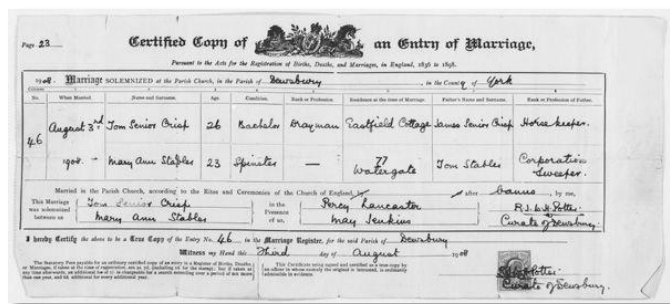 Page 23
Certified Copy of an Entry of Marriage,
Pursuant to the Acts for the Registration of Births, Deaths, and Marriages, in England, 1836 to 1898.
1908. Marriage SOLEMNIZED at the Parish Church, in the Parish of Dewsbury, in the County of York
No. When Married. Name and Surname. Age Condition. Rank or Profession. Residence at the time of Marriage. Father's Name and Surname. Rank or Profession of Father.
46 August 3rd Tom Senior Crisp 26 Bachelor Drayman Eastfield Cottage James Senior Crisp Horse keeper.
1908. Mary Ann Stables 23 Spinster — 77 Watergate Tom Stables Corporation Sweeper.
Married in the Parish Church, according to the Rites and Ceremonies of the Church of England, by after banns, by me,
This Marriage was solemnized between us Tom Senior Crisp Mary Ann Stables in the Presence of us, Percy Lancaster May Jenkins Curate of Dewsbury.
I hereby Certify the above to be a True Copy of the Entry No. 46 in the Marriage Register, for the said Parish of Dewsbury
Witness my Hand this Third day of August 1908
Curate of Dewsbury.